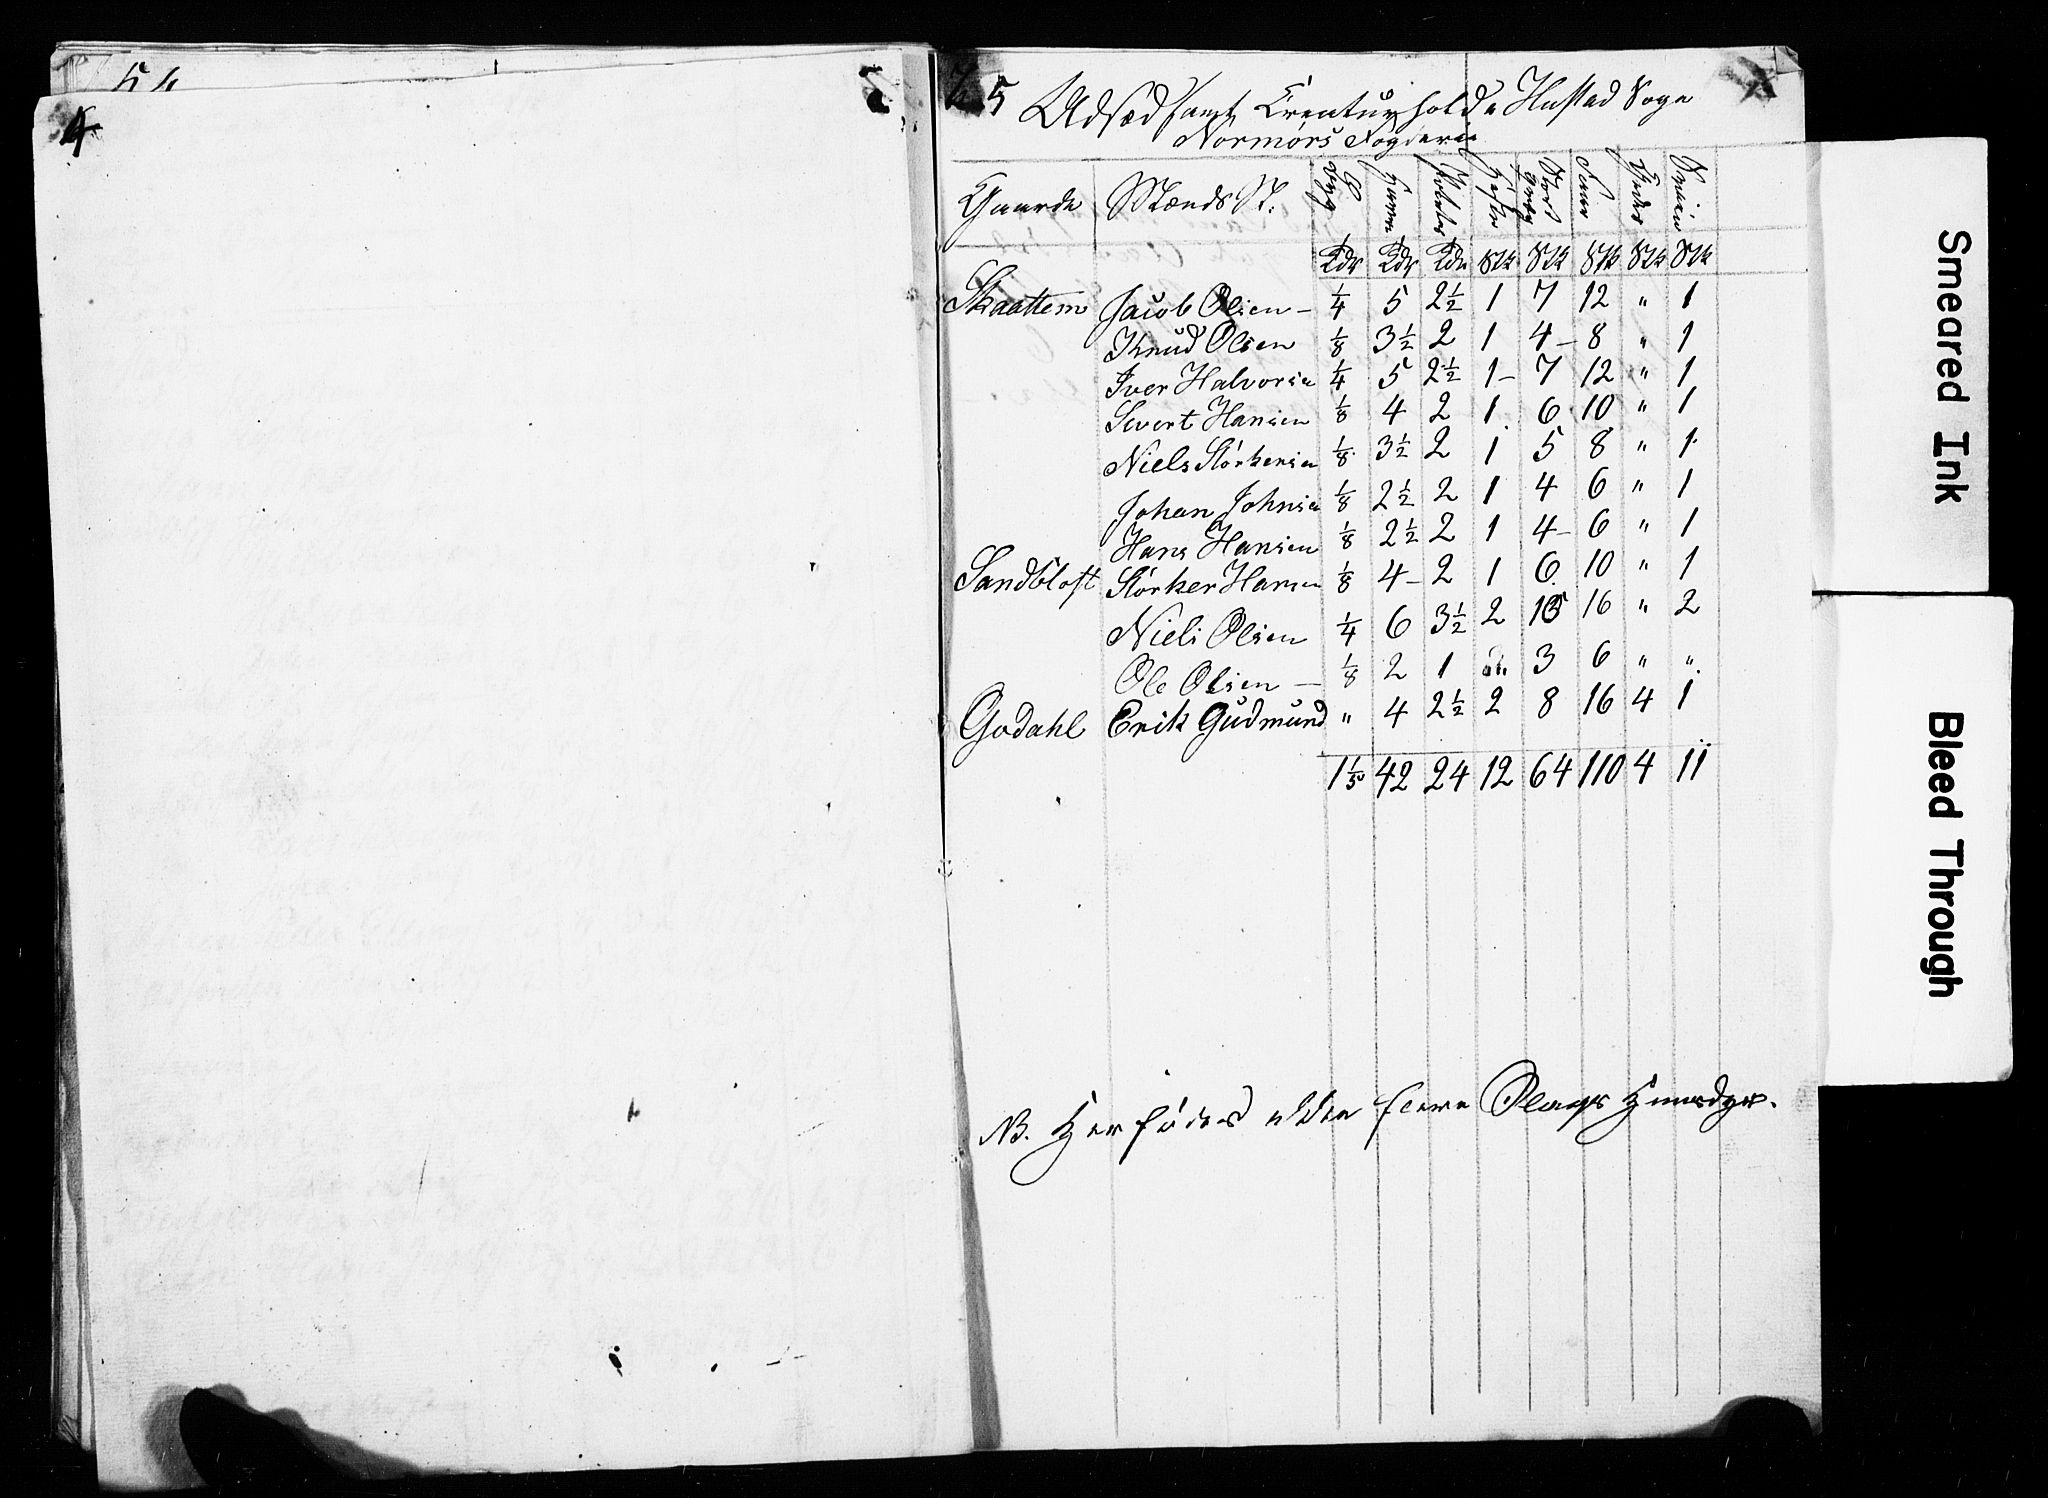 54
4
5 Udsæd samt Creaturhold i Hustad Sogn
Normørs Fogderie
Gaarde Mænds N. Byg Havre Poteter Heste Stort Qvæg Faar Gjeder Sviin
Tdr Tdr Tdr Stk Stk Stk Stk Stk
Skaattem Jacob Olsen – 1/4 5 2 1/2 1 7 12 " 1
Knud Olsen 1/8 3 1/2 2 1 4 – 8 " 1
Iver Halvorsen 1/4 5 2 1/2 1 – 7 12 " 1
Sivert Hansen 1/8 4 2 1 6 10 " 1
Niels Størkersen 1/8 3 1/2 2 1 5 8 " 1
Johan Johnsen 1/8 2 1/2 2 1 4 6 " 1
Hans Hansen 1/8 2 1/2 2 1 4 – 6 " 1
Sandblost Størker Hansen 1/8 4 – 2 1 6 10 " 1
Niels Olsen 1/4 6 3 1/2 2 10 16 " 2
Ole Olsen – 1/8 2 1 " 3 6 " "
Godahl Erik Gudmund " 4 2 1/2 2 8 16 4 1
1 1/5 42 24 12 64 110 4 11
NB. Her fødes ikke flere Slags Huusdyr.
Smeared Ink
Bleed Through